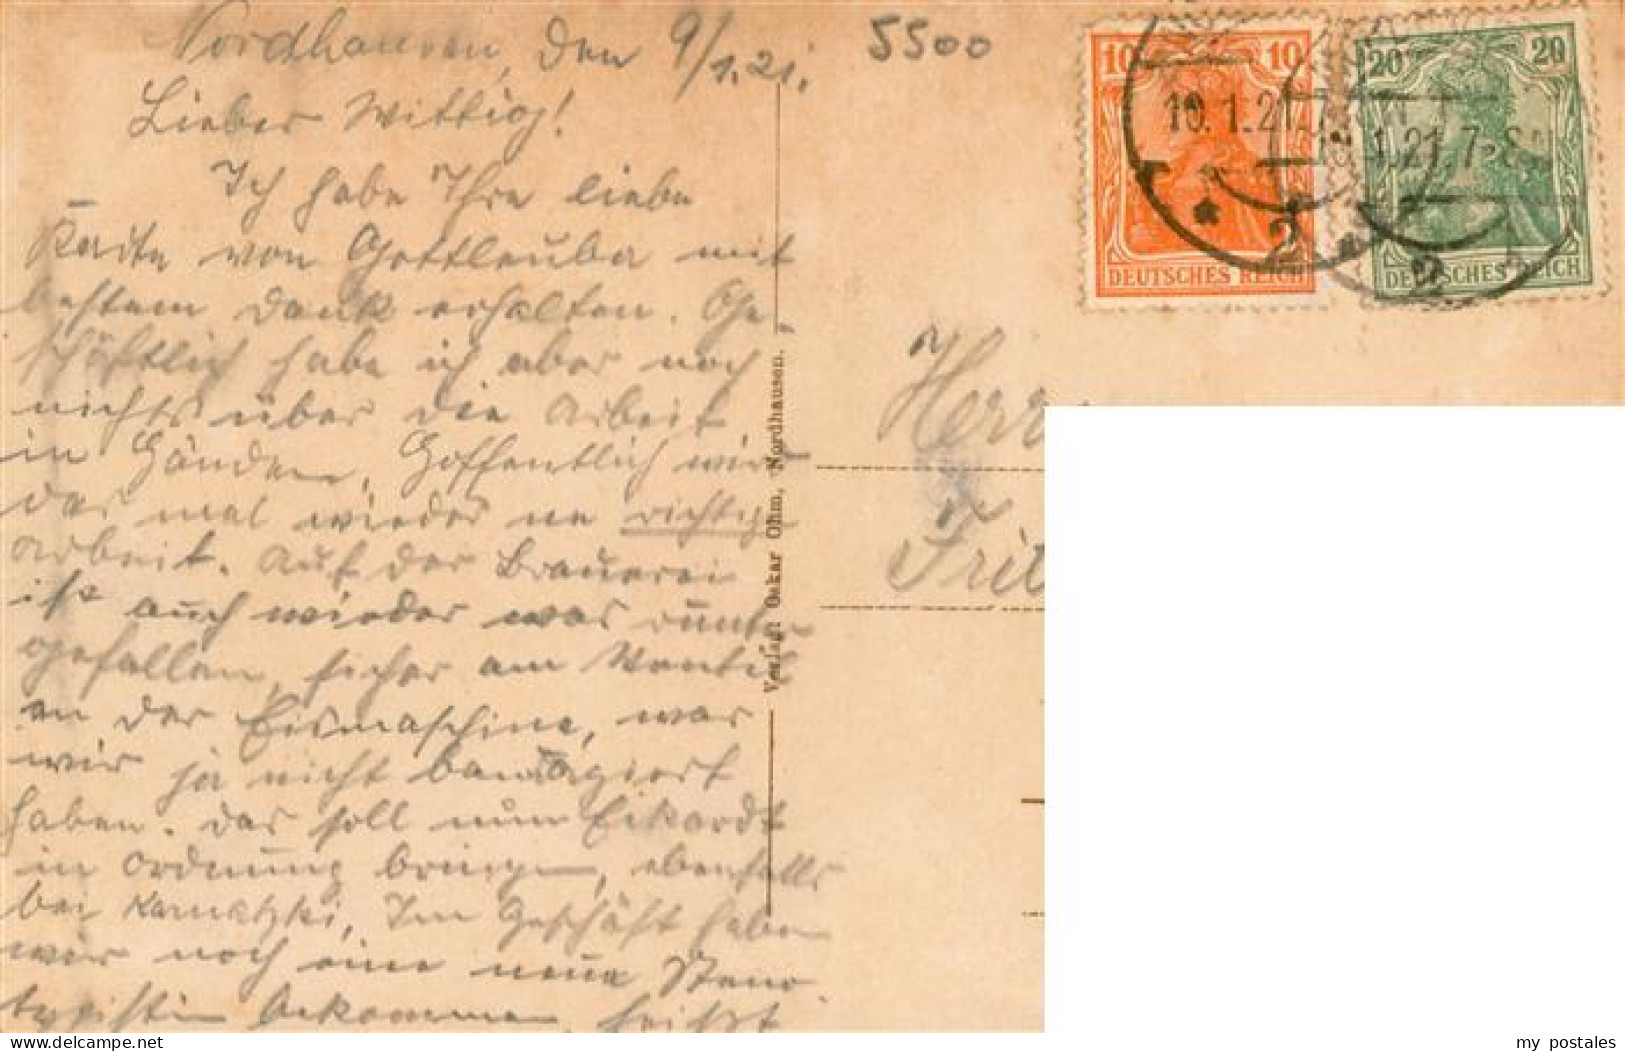 Nordhausen, den 9/1.21.
5500
Lieber Wittig!
Ich habe Ihre liebe
Karte von Gottleuba mit
bestem Dank erhalten. Ge-
schäftlich habe ich aber noch
nichts über die Arbeit
in Händen, Hoffentlich wird
das mal wieder ne richtige
Arbeit. Auf der Brauerei
ist auch wieder was runter
gefallen, sicher am Ventil
an der Eismaschine, was
wir ja nicht
haben. Das soll nun Eckardt
in Ordnung bringen, ebenfalls
bei Im Geschäft haben
wir noch eine neue Steno
typistin bekommen, heißt
Verlag: Oskar Ohm, Nordhausen.
10 10
DEUTSCHES REICH
20 20
DEUTSCHES REICH
10.1.21.7
1.21.7-8
2
2
Herr
Frit
my postales